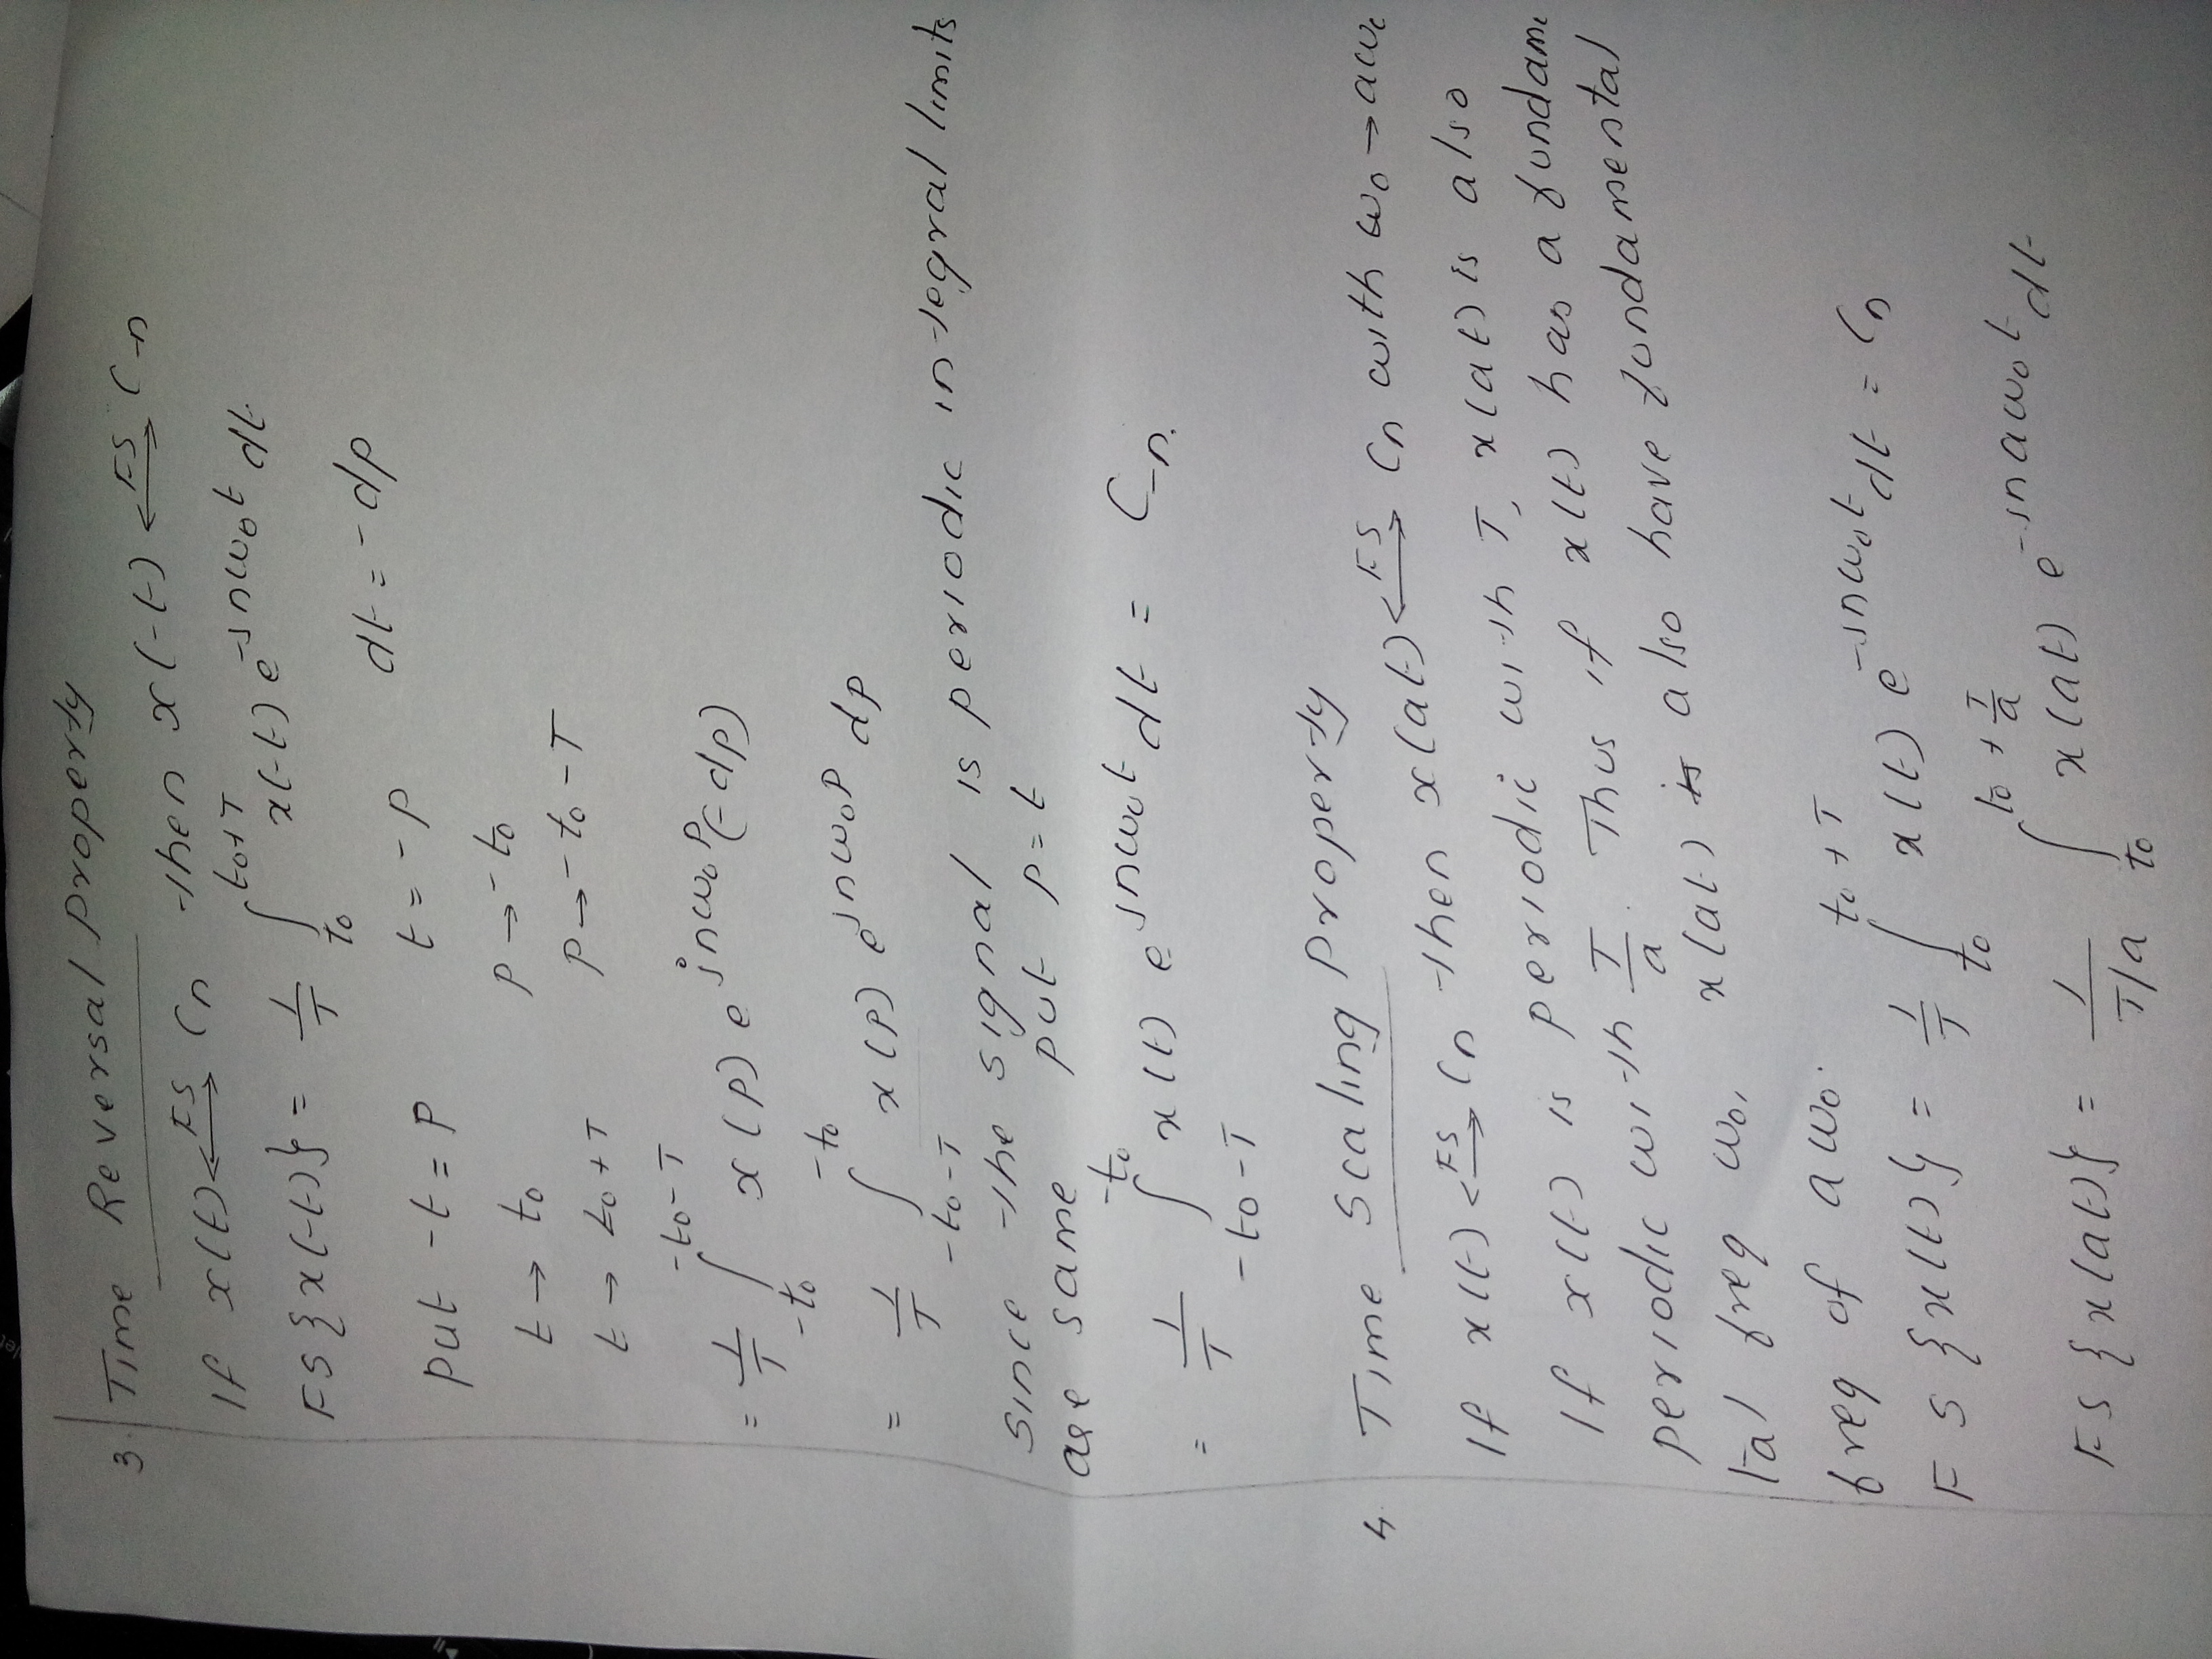 3. Time Reversal Property
If x(t) <--FS--> Cn then x(-t) <--FS--> C-n
FS{x(-t)} = 1/T ∫_{t0}^{t0+T} x(-t) e^{-jnω0t} dt
put -t = P   t = -P   dt = -dp
t → t0   P → -t0
t → t0+T   P → -t0-T
= 1/T ∫_{-t0}^{-t0-T} x(P) e^{jnω0P} (-dp)
= 1/T ∫_{-t0-T}^{-t0} x(P) e^{jnω0P} dp
Since the signal is periodic integral limits
are same   put P = t
= 1/T ∫_{-t0-T}^{-t0} x(t) e^{jnω0t} dt = C-n.
4. Time Scaling Property
If x(t) <--FS--> Cn then x(at) <--FS--> Cn with ω0 → aω
If x(t) is periodic with T, x(at) is also
periodic with T/a. Thus if x(t) has a fundam
tal freq ω0, x(at) also have fundamental
freq of aω0.
FS{x(t)} = 1/T ∫_{t0}^{t0+T} x(t) e^{-jnω0t} dt = Cn
FS{x(at)} = 1/T/a ∫_{t0}^{t0+T/a} x(at) e^{-jnaω0t} dt